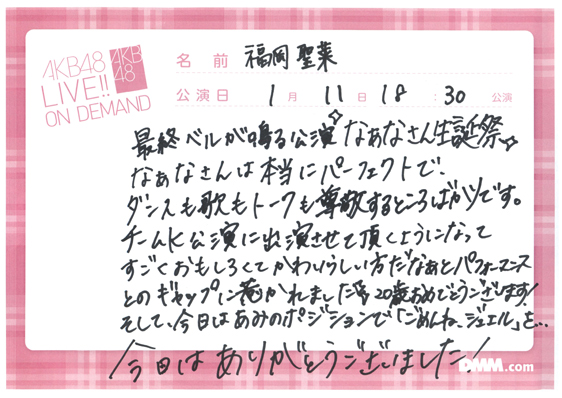 AKB48
LIVE!!
ON DEMAND
AKB
48
名前 福岡 聖菜
公演日 1月 11日 18:30 公演
最終ベルが鳴る公演 なぁなさん生誕祭
なぁなさんは本当にパーフェクトで、
ダンスも歌もトークも尊敬するところばかりです。
チームK公演に出演させて頂くようになって
すごくおもしろくてかわいらしい方だなぁとパフォーマンス
とのギャップに惹かれました 20歳おめでとうございます!
そして、今日はあみのポジションで「ごめんね、ジュエル」を…
今日はありがとうございました!
DMM.com